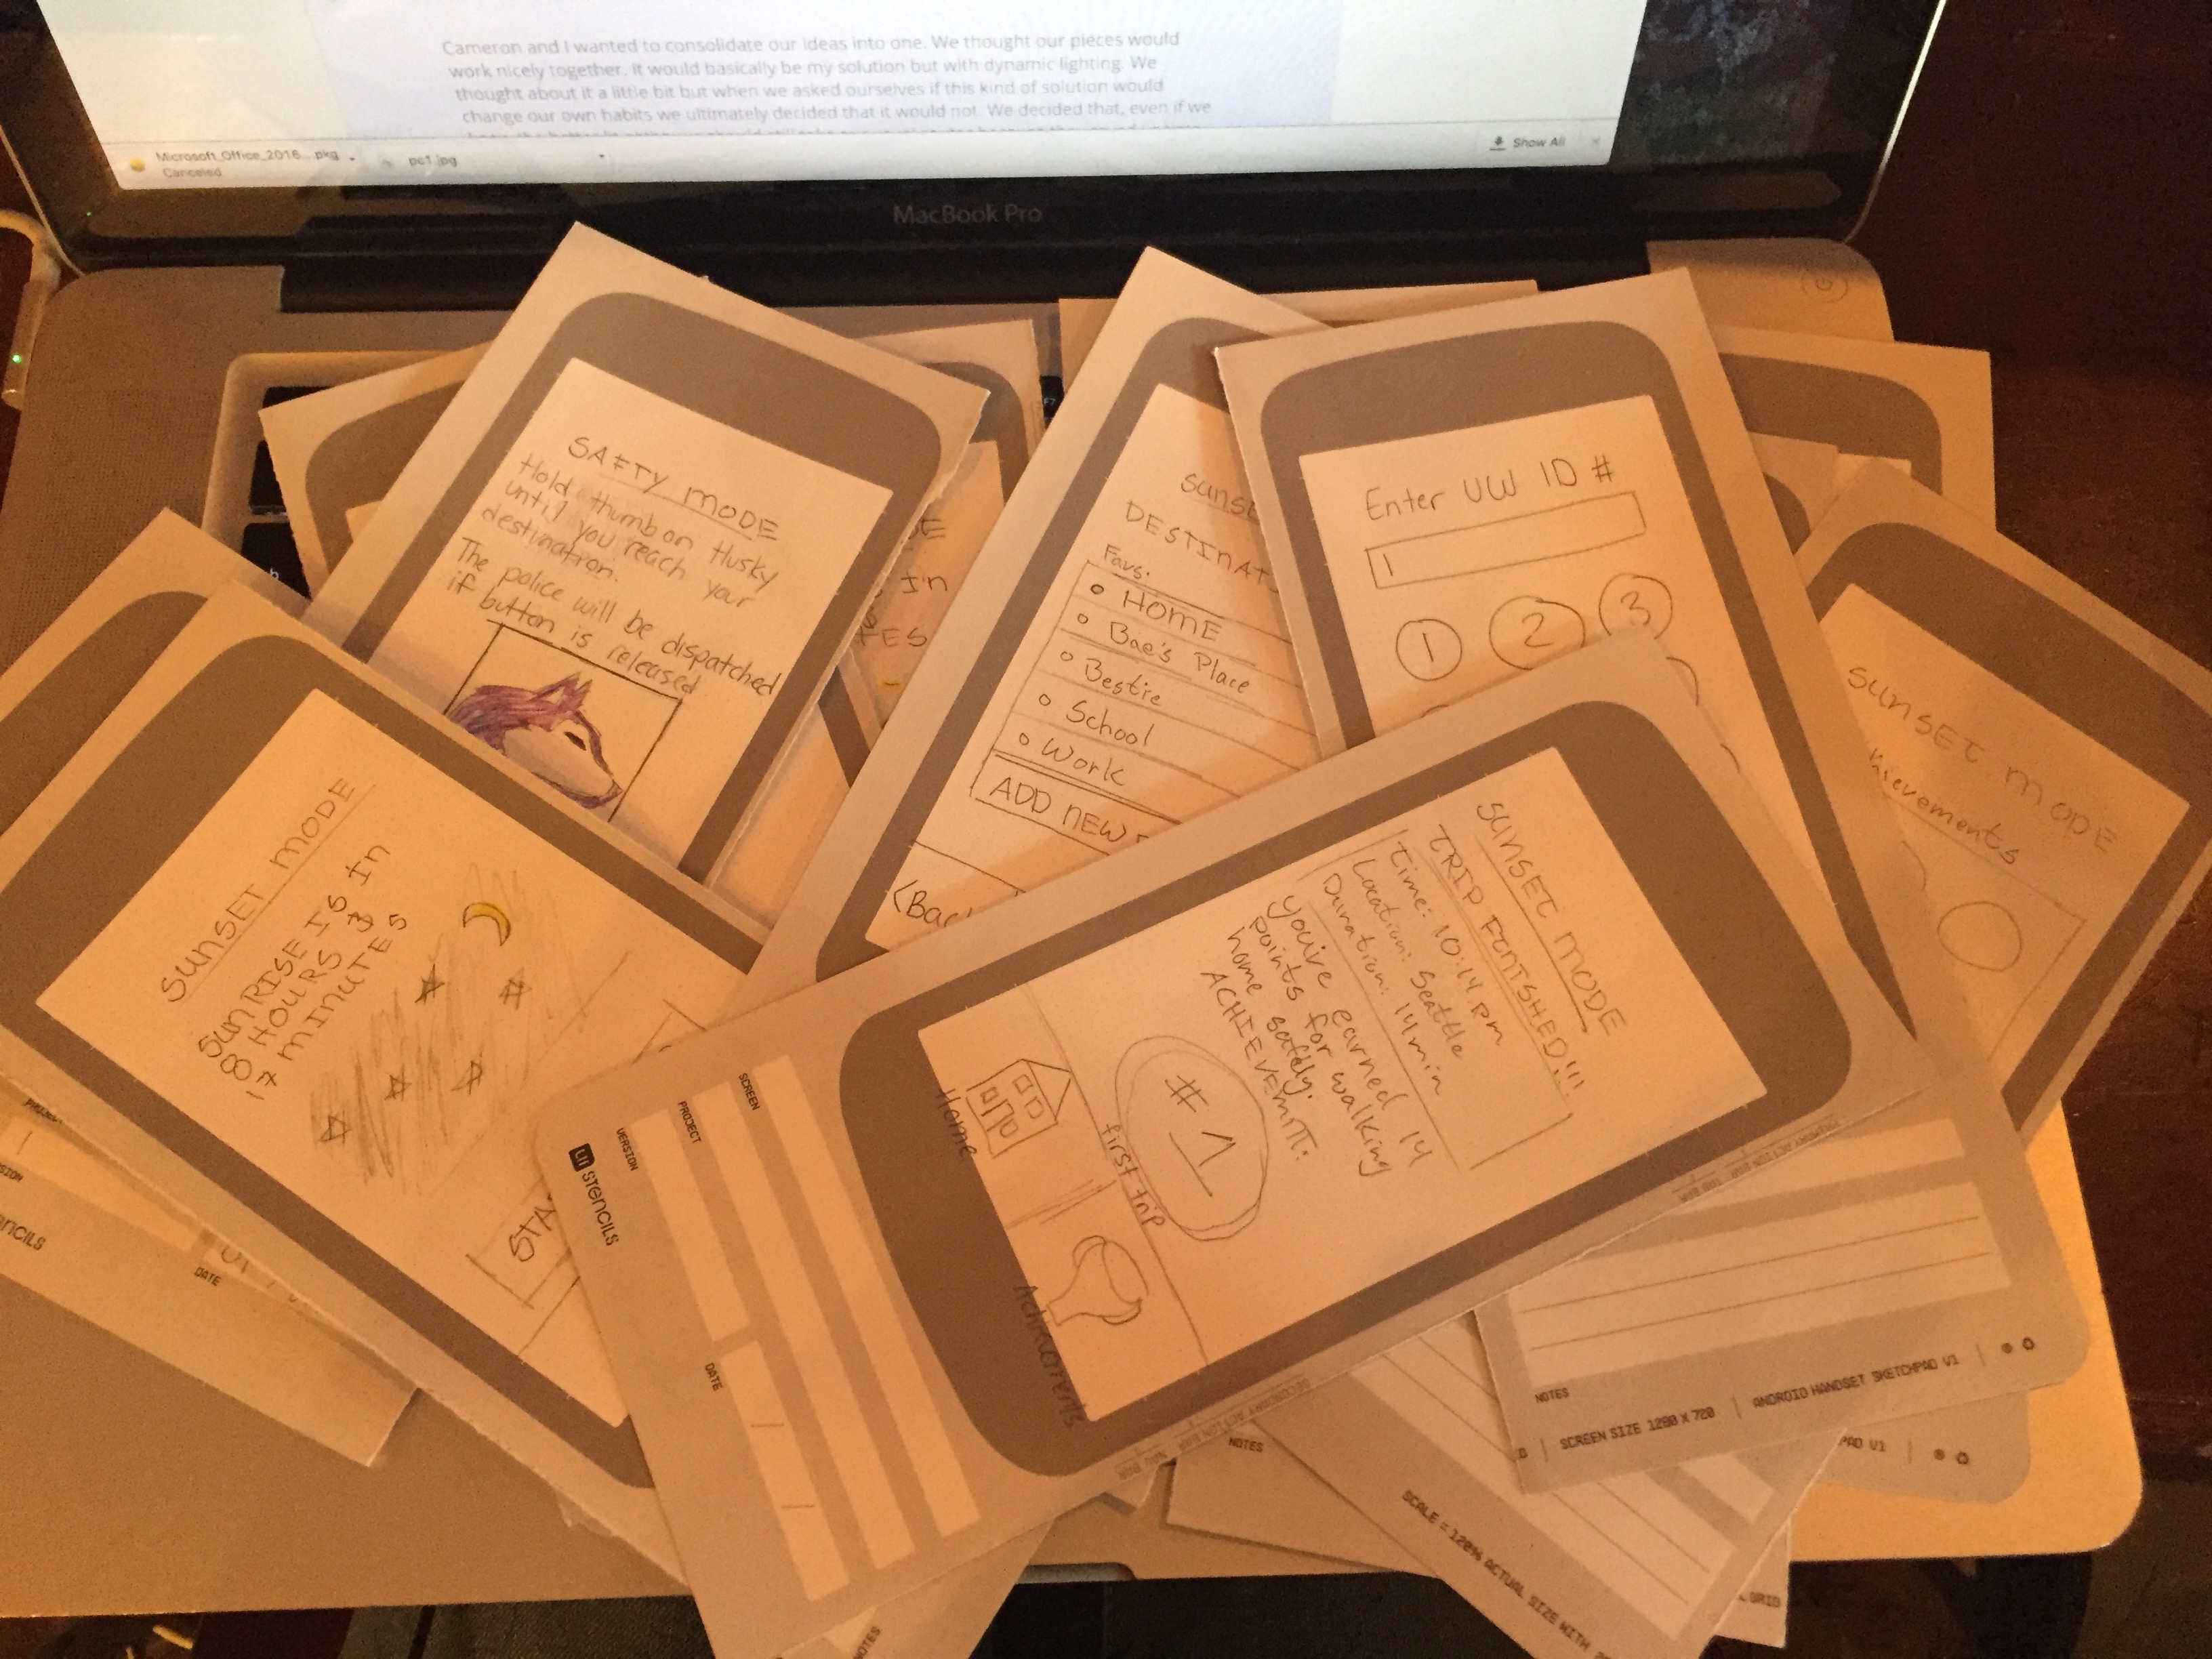 Cameron and I wanted to consolidate our ideas into one. We thought our pieces would
work nicely together. It would basically be my solution but with dynamic lighting. We
thought about it a little bit but when we asked ourselves if this kind of solution would
change our own habits we ultimately decided that it would not. We decided that, even if we
Microsoft_Office_2016....pkg
Canceled
pc1.jpg
Show All
MacBook Pro
SAFTY MODE
Hold thumb on Husky
until you reach your
destination.
The police will be dispatched
if button is released
In
SUNSE
DESTINAT
Favs.
HOME
Bae's Place
Bestie
School
Work
ADD NEW
(Bac
Enter UW ID #
1
1 2 3
SUNSET MODE
hievements
SUNSET MODE
SUNRISE IS IN
8 HOURS &
17 MINUTES
STA
SUNSET MODE
TRIP FONISHED!!!
Time: 10:14 pm
Location: Seattle
Duration: 14min
you've earned 14
points for walking
home safely.
ACHIEVEMNT:
# 1
first trip
Home
Achievements
SCREEN
PROJECT
VERSION
DATE
UI STENCILS
PROJEC
SION
DATE
ENCILS
PRIMARY ACTION BAR
TAB BAR
SECONDARY ACTION BAR
NAV BAR
NOTES
SCREEN SIZE 1280 X 720 | ANDROID HANDSET SKETCHPAD V1
PAD V1
NOTES
SCALE = 120% ACTUAL SIZE WITH
GRID
NOTES